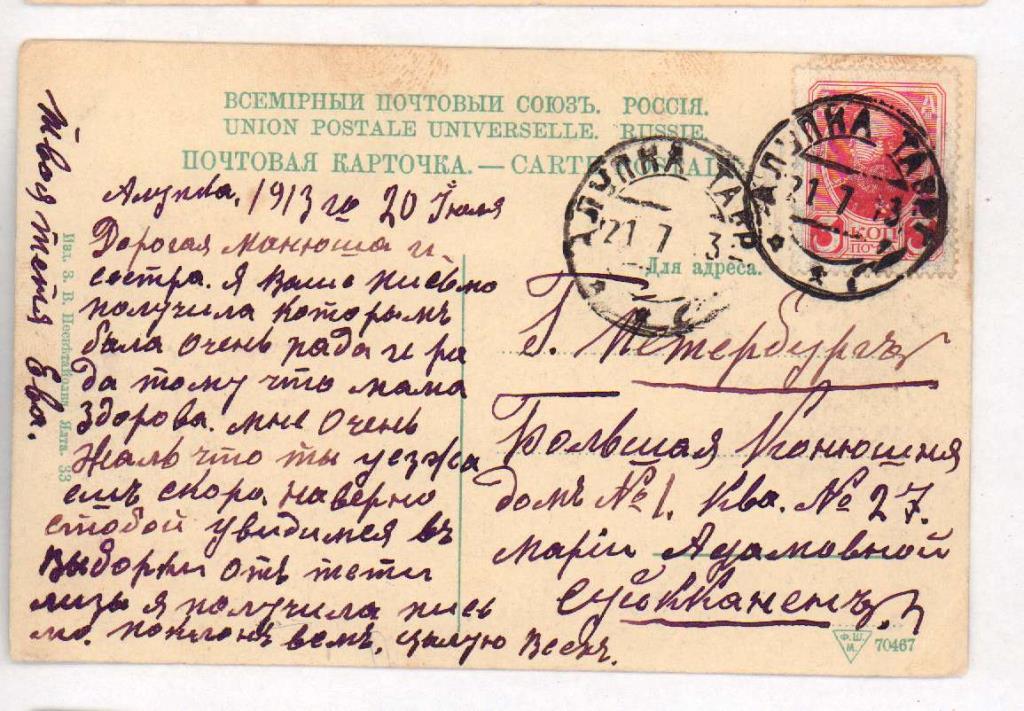 ВСЕМІРНЫЙ ПОЧТОВЫЙ СОЮЗЪ. РОССІЯ.
UNION POSTALE UNIVERSELLE. RUSSIE.
ПОЧТОВАЯ КАРТОЧКА. — CARTE POSTALE
Алупка. 1913 го 20 Июля
Дорогая Манюша и
сестра. я Ваше писмо
получила которымъ
была очень рада и ра
да тому что мама
здорова. мне очень
жаль что ты уезжа
ешъ скоро. наверно
стобой увидимся въ
Выборги отъ тети
лизы я получила пись
мо. поклонъ всемъ. цалую Всехъ.
твоя тетя Ева.
Изд. З. В. Ялта. 33
АЛУПКА ТАВР.
21 7 13
АЛУПКА ТАВР.
21 7 13
3 КОП 3
Для адреса.
Г. Петербургъ
Большая Конюшня
домъ № 1. Ква. № 27.
Маріи Адамовной
Суйкканенъ
Ф.Ш.
М.
70467